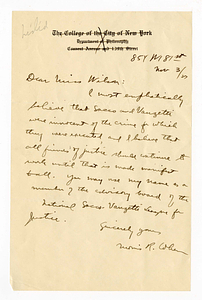 The College of the City of New York
Department of Philosophy
Convent Avenue and 139th Street
Nov 3/27
Dear Miss Wilson:
I most emphatically
believe that Sacco and Vanzetti
were innocent of the crime for which
they were executed and I believe that
all friends of justice should continue to
work until that is made manifest
to all. You may use my name as a
member of the advisory board of the
National Sacco Vanzetti League for
Justice.
Sincerely yours
Morris R. Cohen